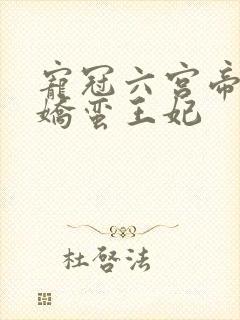 寵冠六宮帝
嬌蛮王妃
杜啓法